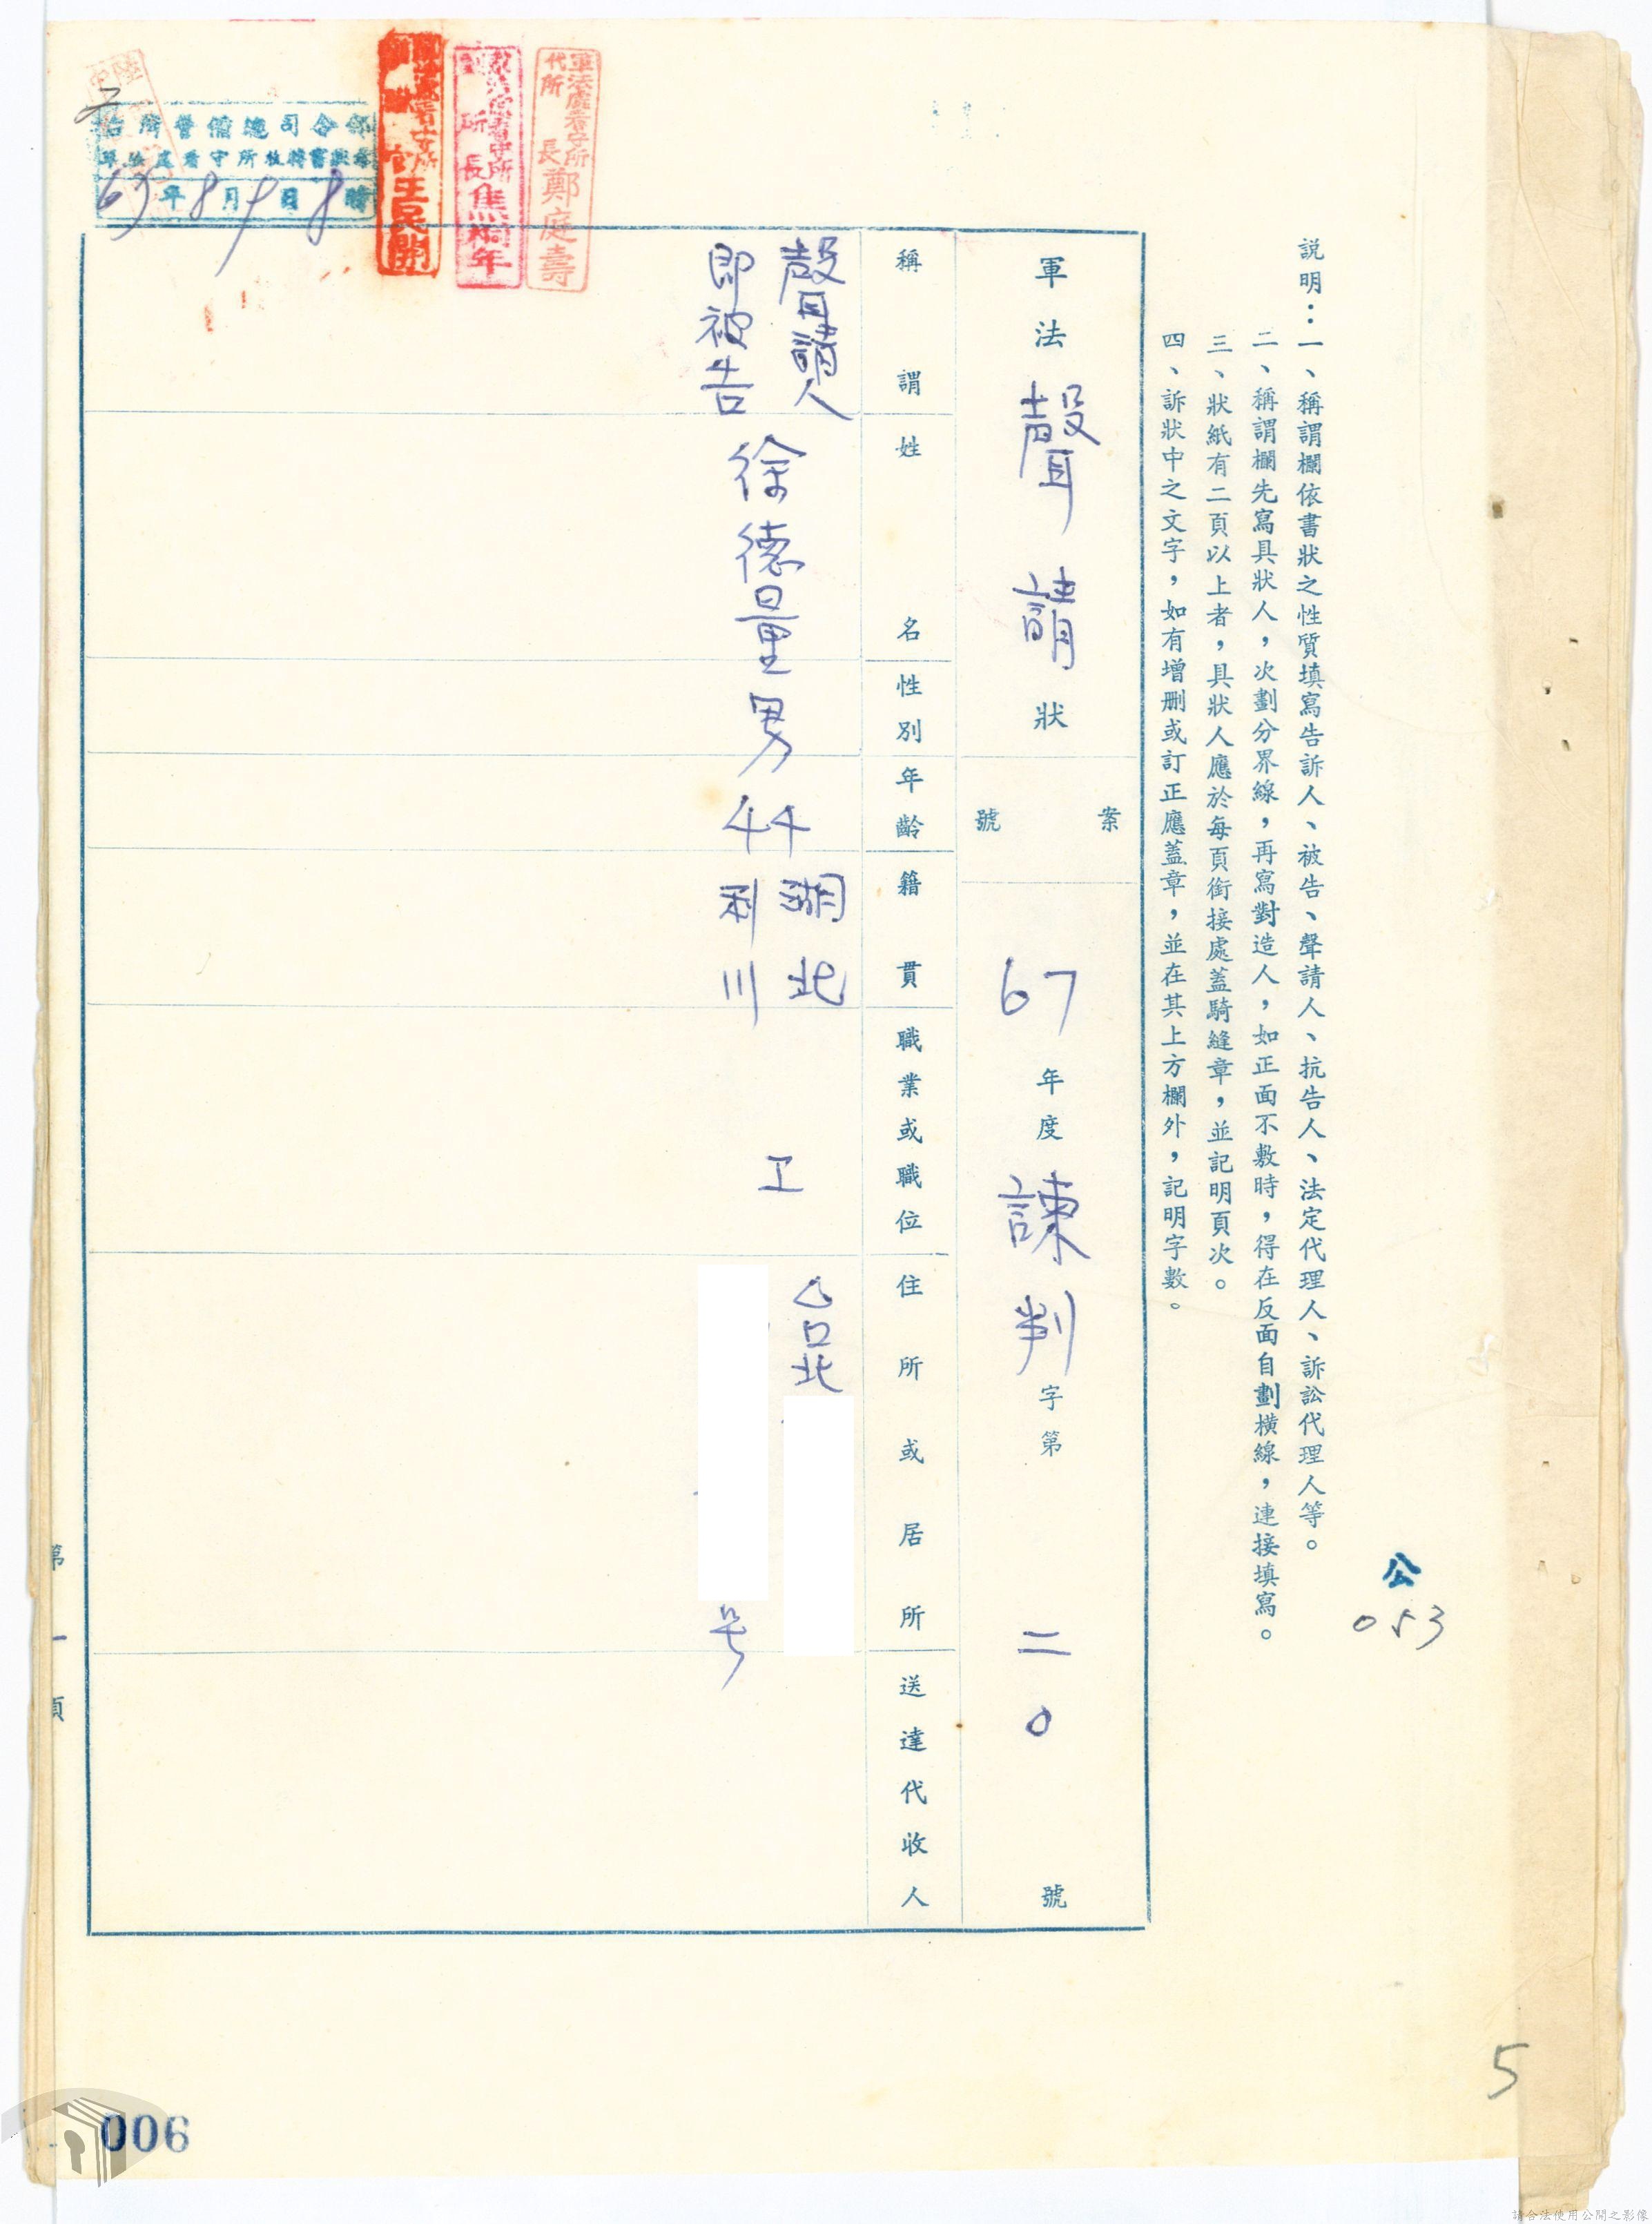 說明：一、稱謂欄依書狀之性質填寫告訴人、被告、聲請人、抗告人、法定代理人、訴訟代理人等。
二、稱謂欄先寫具狀人，次劃分界線，再寫對造人，如正面不敷時，得在反面自劃橫線，連接填寫。
三、狀紙有二頁以上者，具狀人應於每頁銜接處蓋騎縫章，並記明頁次。
四、訴狀中之文字，如有增刪或訂正應蓋章，並在其上方欄外，記明字數。
公
053
軍法聲請狀
案號
67年度諫判字第二0號
稱謂
姓名
性別
年齡
籍貫
職業或職位
住所或居所
送達代收人
聲請人
即被告
徐德量
男
44
湖北
利川
工
台北
号
軍法處看守所
代所長鄭庭壽
所長焦桐年
年8月9日8時
第一頁
5
006
請合法使用公開之影像